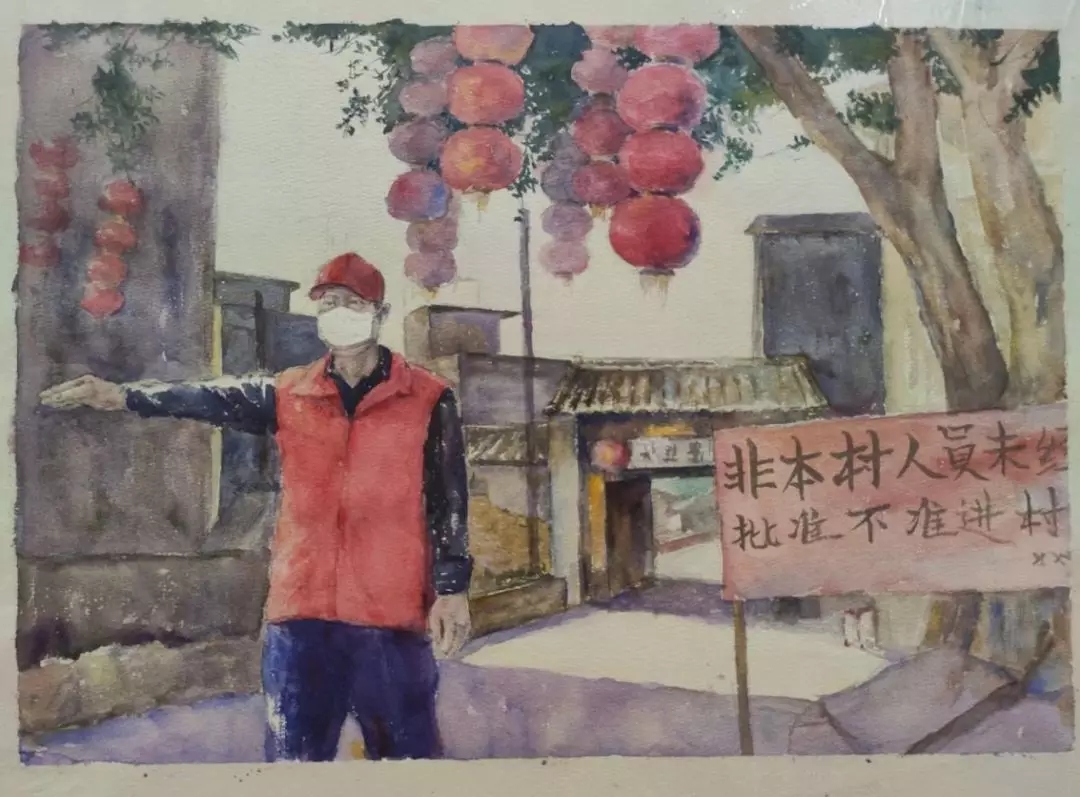 非本村人員未经
批准不准进村
××